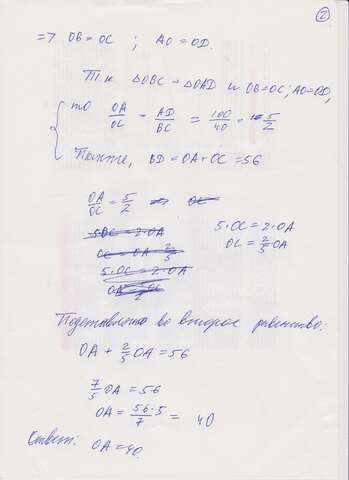 2
=> OB = OC ; AO = OD.
Т.к. ΔOBC ~ ΔOAD и OB=OC; AO=OD,
то OA/OC = AD/BC = 100/40 = 5/2
Также, BD = OA + OC = 56
OA/OC = 5/2
5·OC = 2·OA
5·OC = 2·OA
OC = 2/5 OA
5·OC = 2·OA
Подставляем во второе равенство:
OA + 2/5 OA = 56
7/5 OA = 56
OA = 56·5/7 = 40
Ответ: OA = 40.